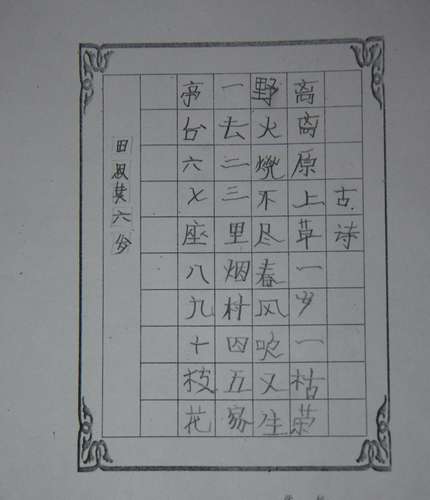 古诗
离离原上草一岁一枯荣
野火烧不尽春风吹又生
一去二三里烟村四五家
亭台六七座八九十枝花
田思其六岁